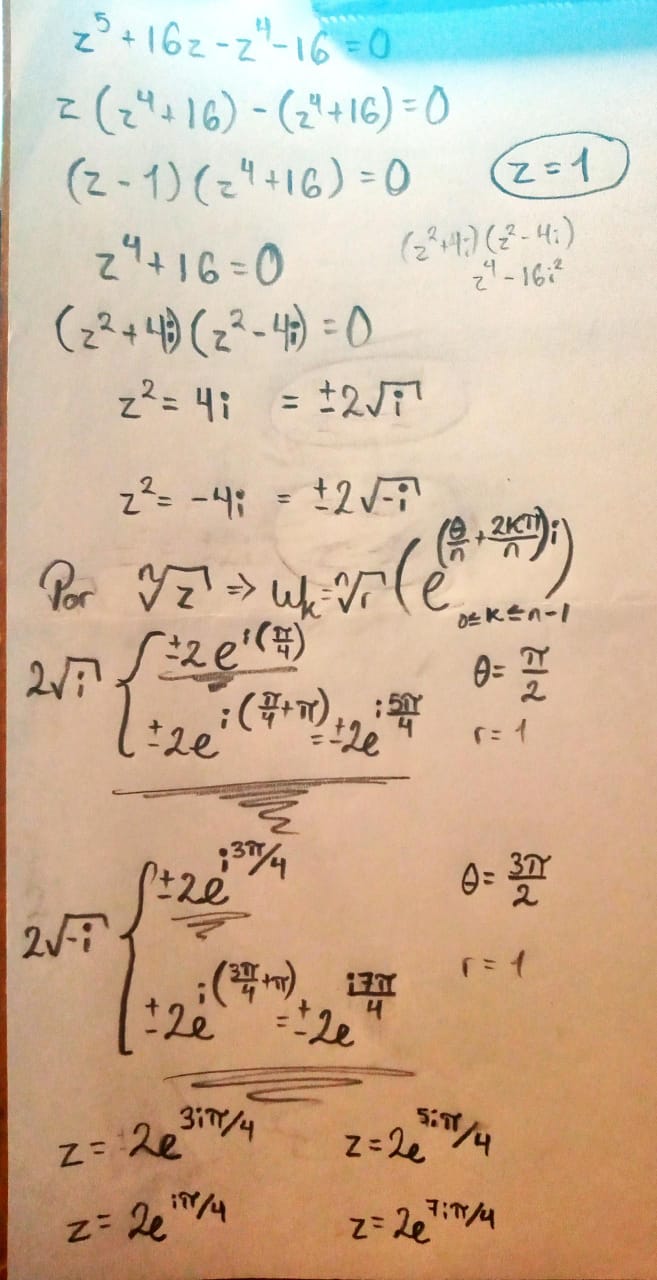 z⁵ + 16z - z⁴ - 16 = 0
z (z⁴ + 16) - (z⁴ + 16) = 0
(z - 1) (z⁴ + 16) = 0 z = 1
z⁴ + 16 = 0 (z² + 4i) (z² - 4i)
z⁴ - 16i²
(z² + 4i) (z² - 4i) = 0
z² = 4i = ±2√i
z² = -4i = ±2√-i
Por ⁿ√z ⇒ wₖ = ⁿ√r (e^((θ/n + 2kπ/n)i)) 0≤k≤n-1
2√i { ±2e^(i(π/4)) θ = π/2
±2e^(i(π/4 + π)) = ±2e^(i5π/4) r = 1
2√-i { ±2e^(i3π/4) θ = 3π/2
±2e^(i(3π/4 + π)) = ±2e^(i7π/4) r = 1
z = 2e^(3iπ/4) z = 2e^(5iπ/4)
z = 2e^(iπ/4) z = 2e^(7iπ/4)